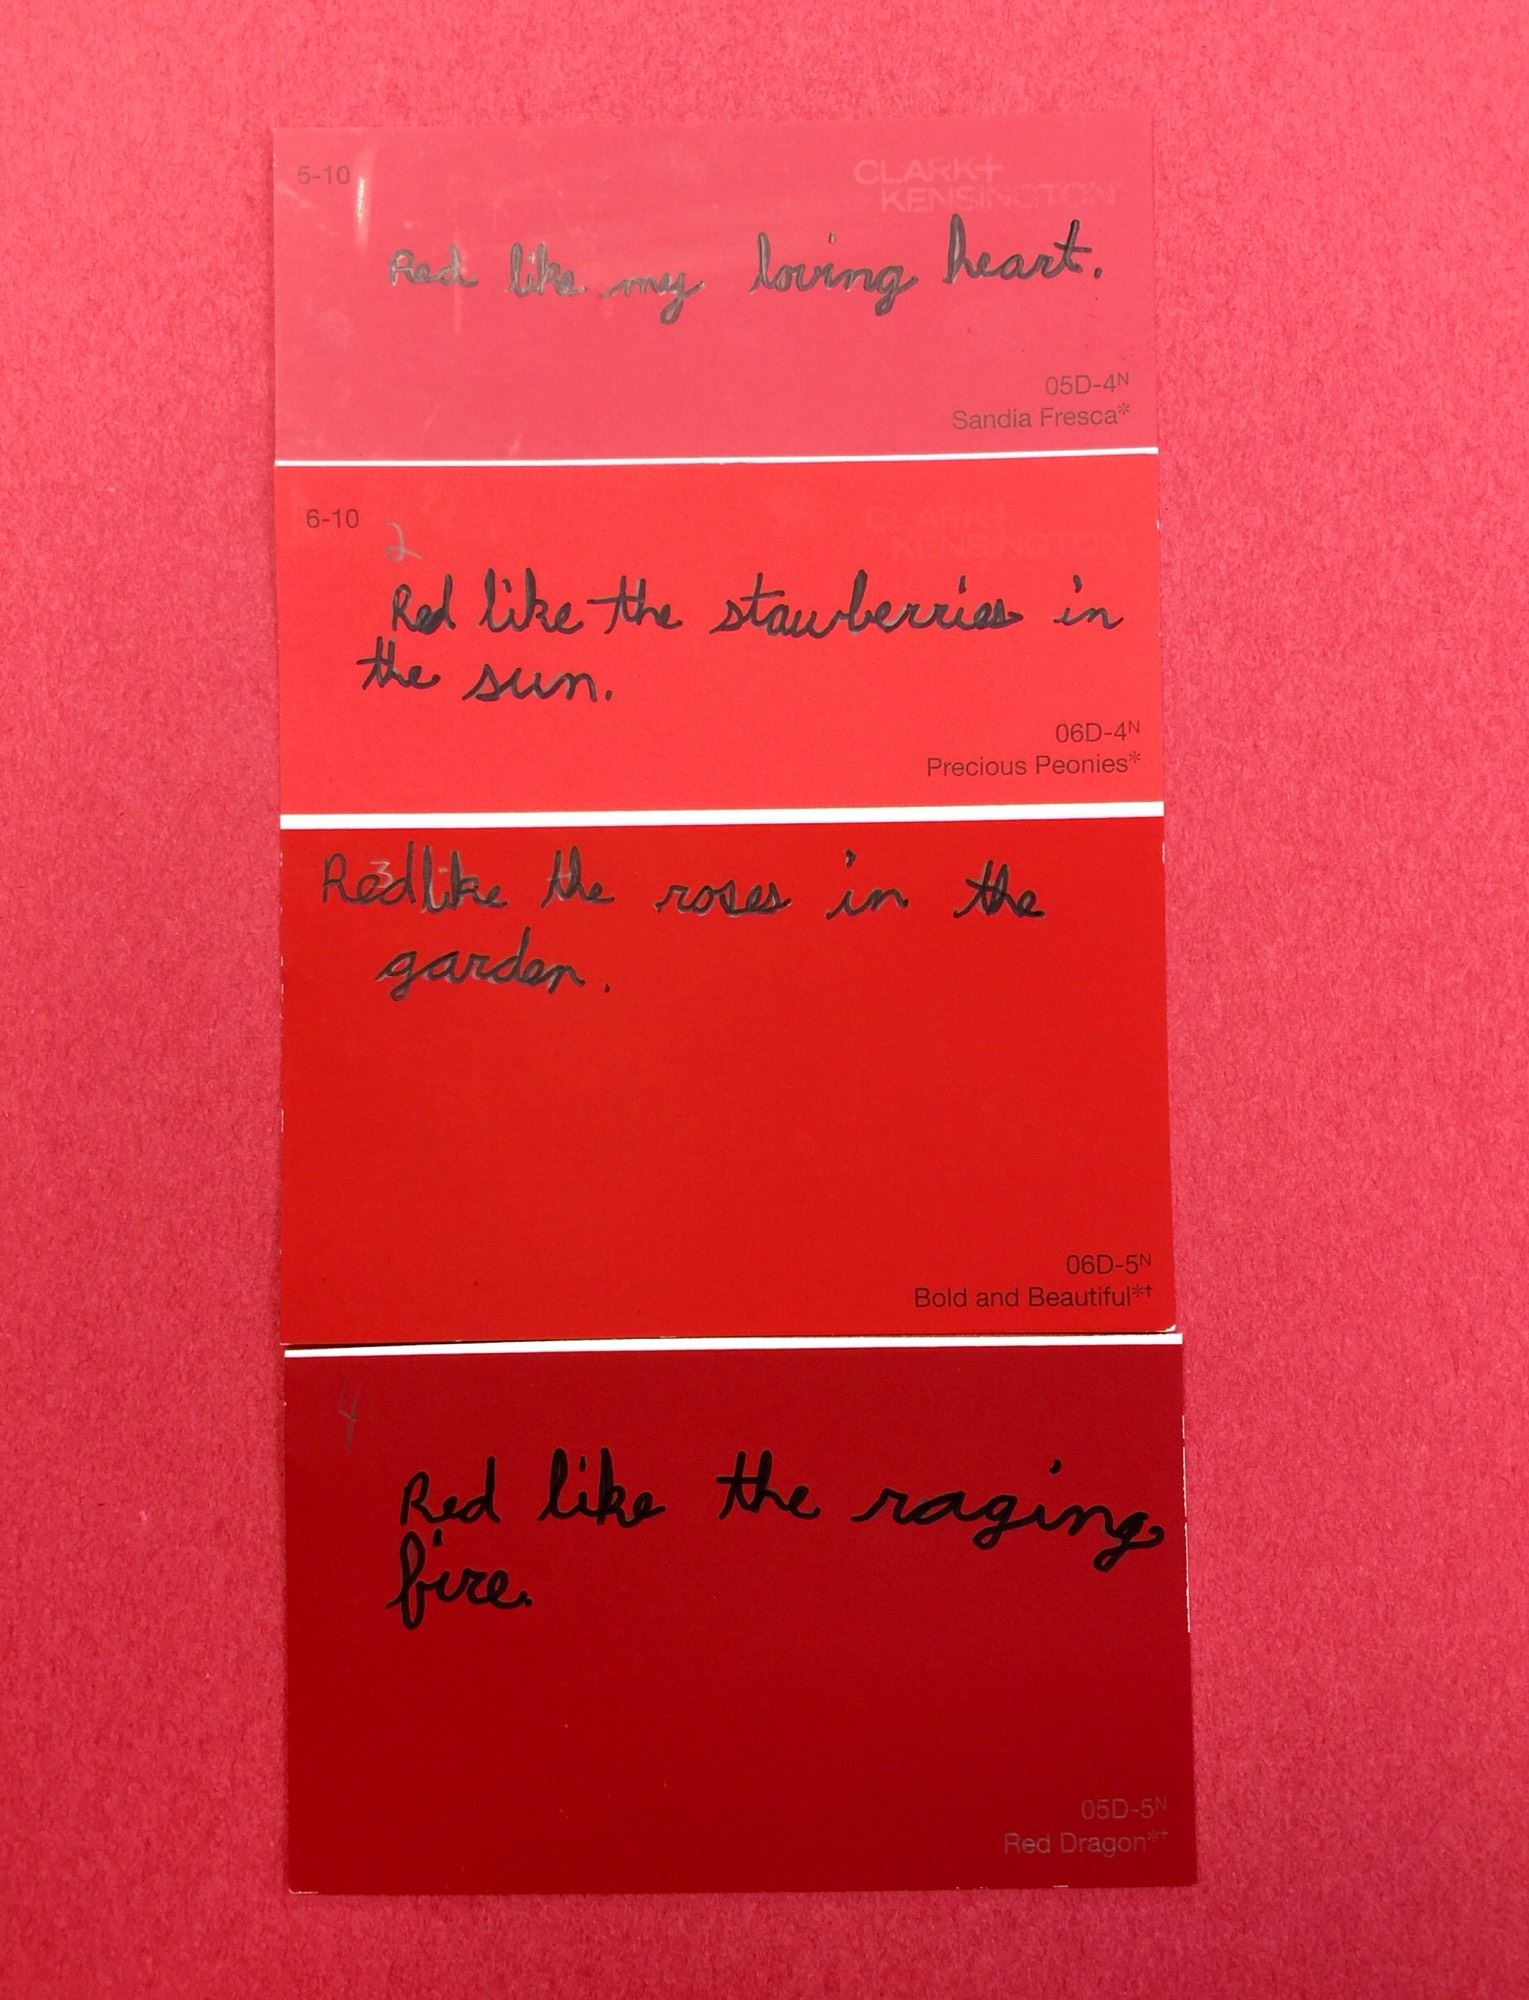 5-10
CLARK+
KENSINGTON
Red like my loving heart.
05D-4N
Sandia Fresca*
6-10
2
CLARK+
KENSINGTON
Red like the stawberries in
the sun.
06D-4N
Precious Peonies*
3
Red like the roses in the
garden.
06D-5N
Bold and Beautiful*†
4
Red like the raging
fire.
05D-5N
Red Dragon*†